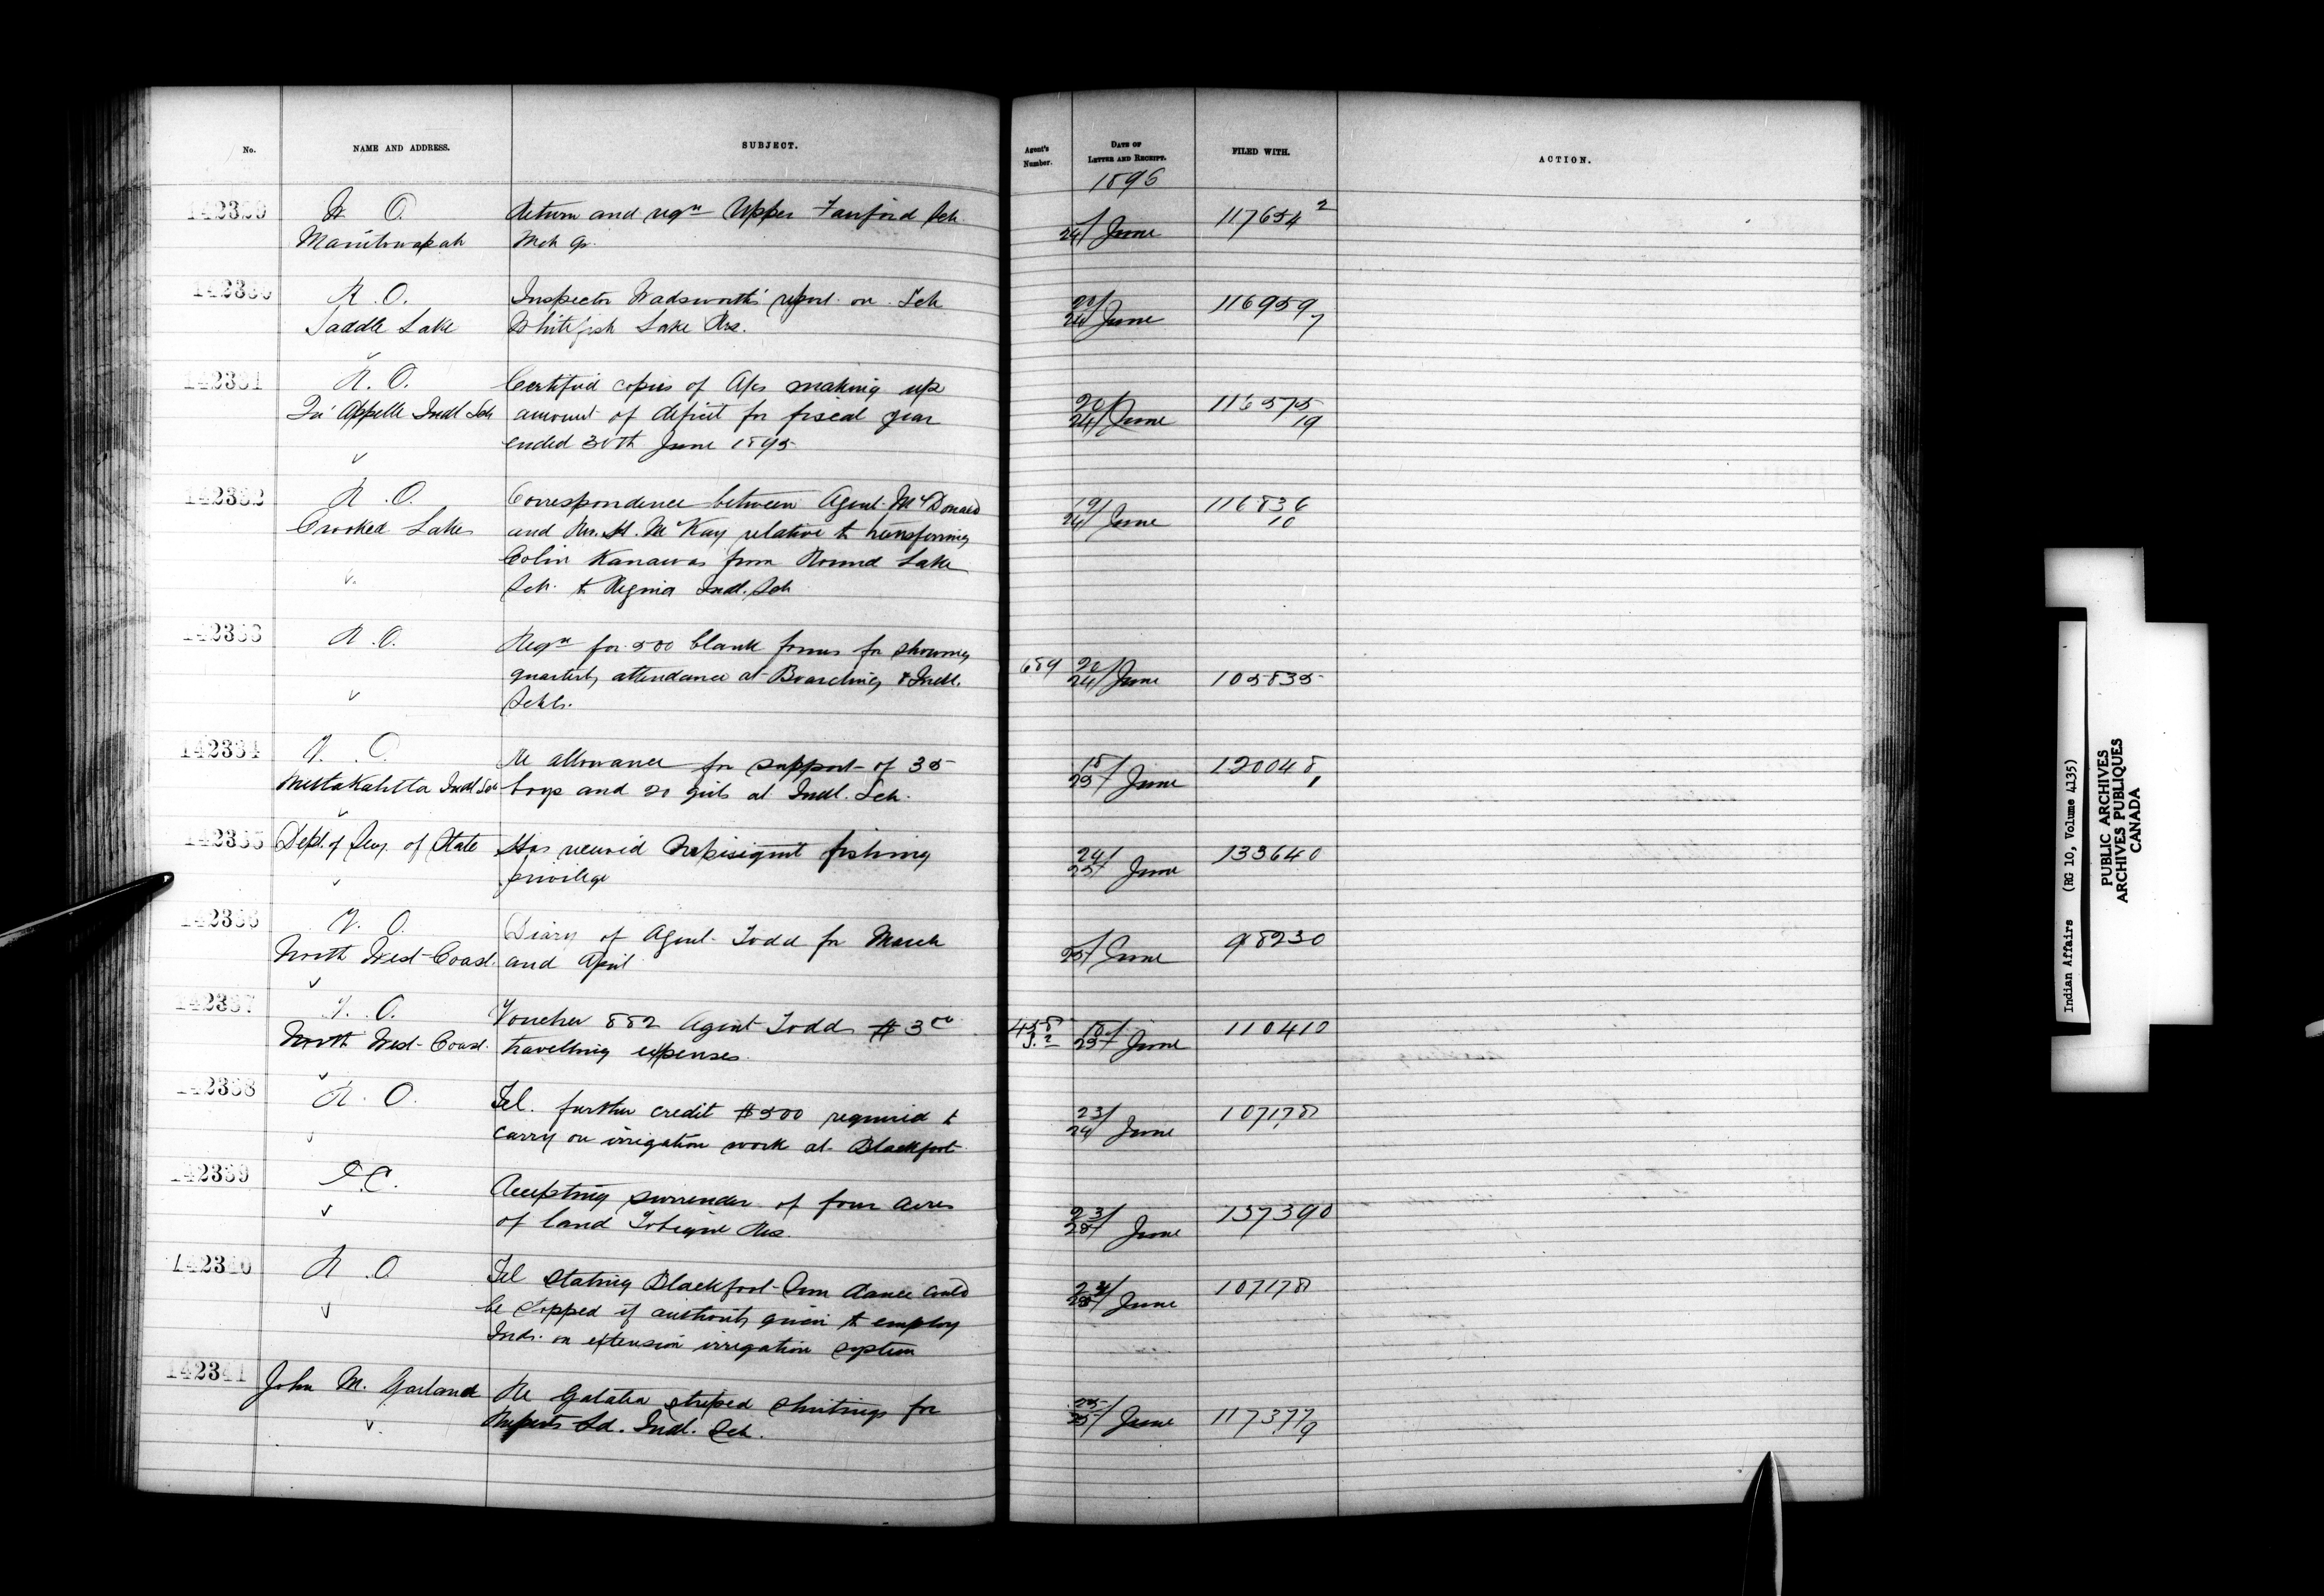 No.
NAME AND ADDRESS.
SUBJECT.
Agent's Number.
DATE OF LETTER AND RECEIPT.
FILED WITH.
ACTION.
1896
142329
Manitowapah
Return and reqn Upper Fairford Sch
Mch qr.
24/June
117654 2
142330
R. O.
Saddle Lake
Inspector Wadsworth's report on Sch
Whitefish Lake Res.
20/24 June
116959 7
142331
R. O.
Qu'Appelle Indl Sch
Certified copies of A/cs making up
amount of deficit for fiscal year
ended 30th June 1895
20/24 June
116575 19
142332
R. O.
Crooked Lakes
Correspondence between Agent McDonald
and Rev. H. McKay relative to transferring
Colin Kanawas from Round Lake
Sch. to Regina Indl. Sch
19/24 June
116836 10
142333
R. O.
Reqn for 500 blank forms for showing
quarterly attendance at Boarding & Indl.
Schls.
689
20/24 June
105835
142334
V. O.
Metlakahtla Indl Sch
Re allowance for support of 35
boys and 20 girls at Indl. Sch.
18/25 June
120048 1
142335
Dept. of Secy. of State
Has received Nepisiguit fishing
privilege
24/25 June
133640
142336
V. O.
North West Coast.
Diary of Agent Todd for March
and April
25/June
98230
142337
V. O.
North West Coast.
Voucher 882 Agent Todd $3.00
travelling expenses.
458
18/25 June
110410
142338
R. O.
Tel. further credit $500 required to
carry on irrigation work at Blackfoot
23/24 June
107178
142339
P.C.
Accepting surrender of four acres
of land Tobique Res.
23/25 June
137390
142340
R. O.
Tel stating Blackfoot Sun dance could
be stopped if authority given to employ
Inds. on extension irrigation system
24/25 June
107178
142341
John M. Garland
Re Galatea striped shirtings for
Ruperts Ld. Indl. Sch.
25/25 June
117377 9
Indian Affairs (RG 10, Volume 4135)
PUBLIC ARCHIVES
ARCHIVES PUBLIQUES
CANADA